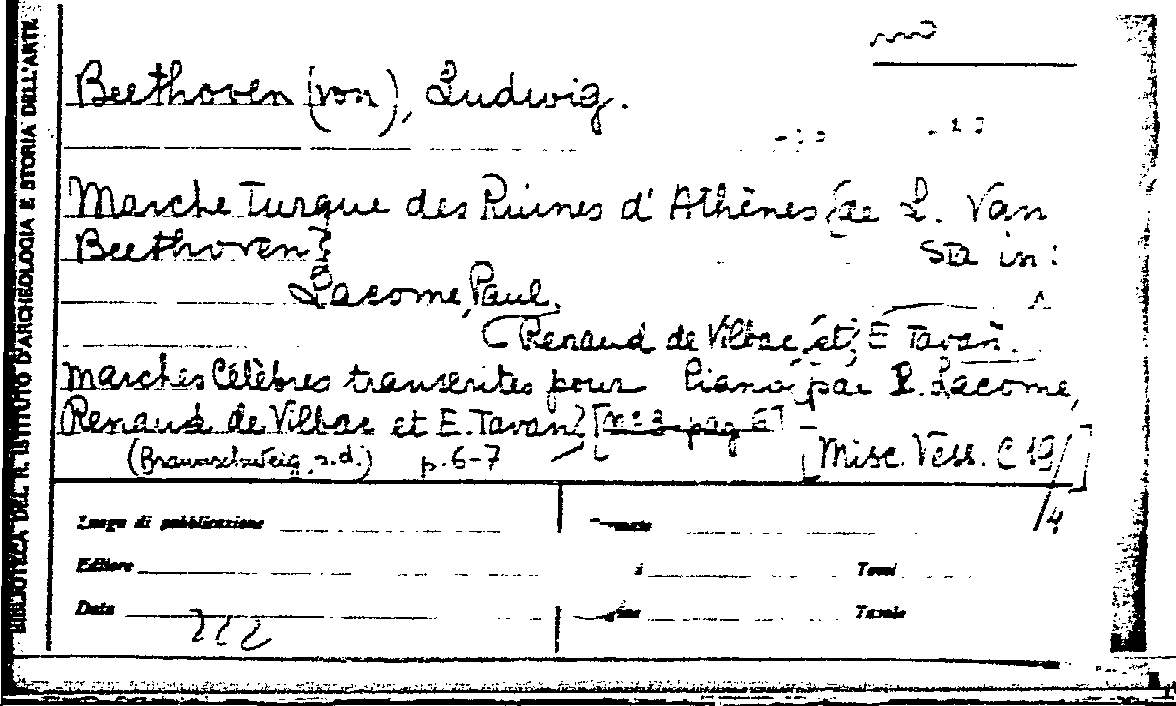 BIBLIOTECA DEL R. ISTITUTO D'ARCHEOLOGIA E STORIA DELL'ARTE
Beethoven (von), Ludwig.
Marche Turque des Ruines d'Athènes [de L. Van
Beethoven]
Sta in:
Lacome, Paul.
Renaud de Vilbac, et, E Tavan.
Marches Célèbres transcrites pour Piano, par P. Lacome,
Renaud de Vilbac et E. Tavan] [n° 3 pag 6]
(Braunschweig, s.d.) p. 6-7
[Misc. Vess. C 19/4]
Luogo di pubblicazione
Editore
Data
Tomi
Tavole